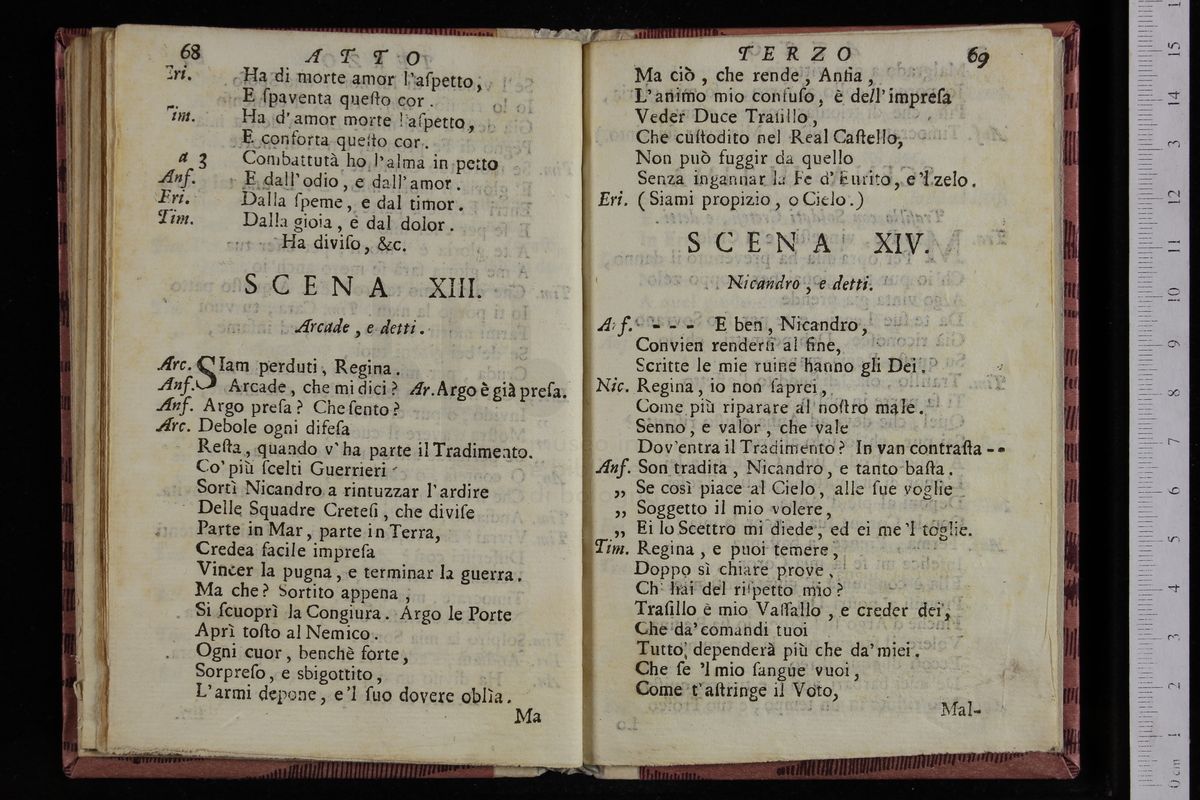 68 ATTO
Eri. Ha di morte amor l'aſpetto,
E ſpaventa queſto cor.
Tim. Ha d'amor morte l'aſpetto,
E conforta queſto cor.
a 3 Combattutà ho l'alma in petto
Anſ. E dall'odio, e dall'amor.
Eri. Dalla ſpeme, e dal timor.
Tim. Dalla gioia, e dal dolor.
Ha diviſo, &c.
SCENA XIII.
Arcade, e detti.
Arc. SIam perduti, Regina.
Anſ. Arcade, che mi dici? Ar. Argo è già preſa.
Anſ. Argo preſa? Che ſento?
Arc. Debole ogni difeſa
Reſta, quando v'ha parte il Tradimento.
Co' più ſcelti Guerrieri
Sortì Nicandro a rintuzzar l'ardire
Delle Squadre Creteſi, che diviſe
Parte in Mar, parte in Terra,
Credea facile impreſa
Vincer la pugna, e terminar la guerra.
Ma che? Sortito appena,
Si ſcuoprì la Congiura. Argo le Porte
Aprì toſto al Nemico.
Ogni cuor, benchè forte,
Sorpreſo, e sbigottito,
L'armi depone, e 'l ſuo dovere oblìa.
Ma
TERZO 69
Ma ciò, che rende, Anſia,
L'animo mio confuſo, è dell'impreſa
Veder Duce Traſillo,
Che cuſtodito nel Real Caſtello,
Non può fuggir da quello
Senza ingannar la Fe d'Eurito, e 'l zelo.
Eri. (Siami propizio, o Cielo.)
SCENA XIV.
Nicandro, e detti.
Anſ. - - - E ben, Nicandro,
Convien renderſi al fine,
Scritte le mie ruine hanno gli Dei.
Nic. Regina, io non ſaprei,
Come più riparare al noſtro male.
Senno, e valor, che vale
Dov'entra il Tradimento? In van contraſta - -
Anſ. Son tradita, Nicandro, e tanto baſta.
„ Se così piace al Cielo, alle ſue voglie
„ Soggetto il mio volere,
„ Ei lo Scettro mi diede, ed ei me 'l toglie.
Tim. Regina, e puoi temere,
Doppo sì chiare prove,
Ch' hai del riſpetto mio?
Traſillo è mio Vaſſallo, e creder dei,
Che da' comandi tuoi
Tutto dependerà più che da' miei.
Che ſe 'l mio ſangue vuoi,
Come t'aſtringe il Voto,
Mal-